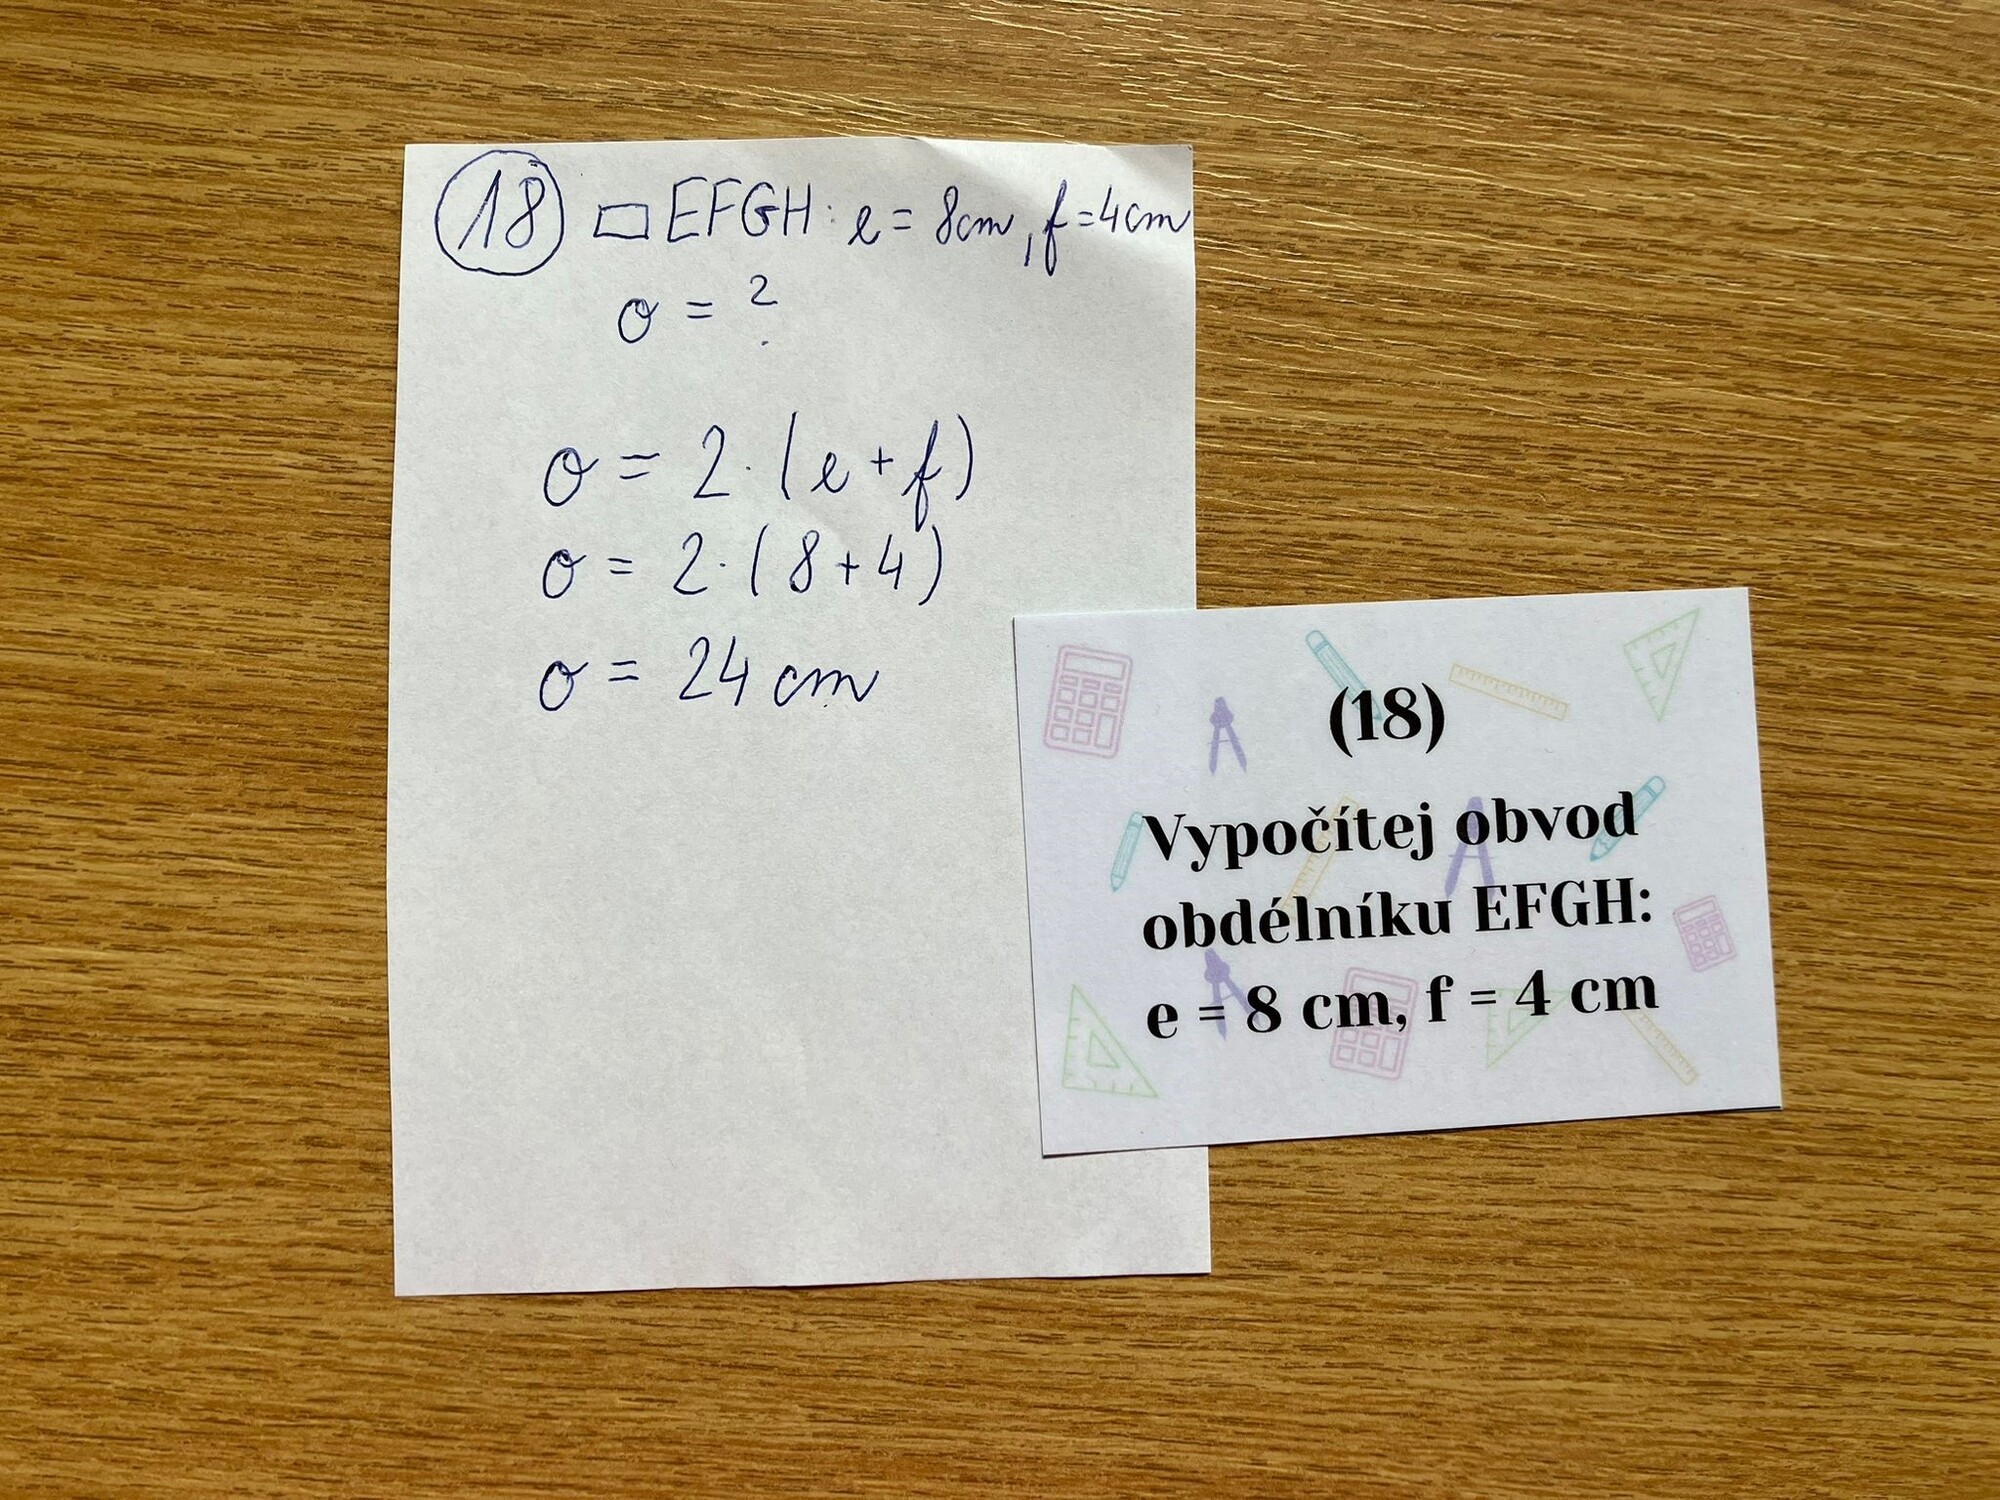 18 ▭ EFGH: e = 8cm, f = 4cm
o = ?
o = 2·(e+f)
o = 2·(8+4)
o = 24 cm
(18)
Vypočítej obvod
obdélníku EFGH:
e = 8 cm, f = 4 cm